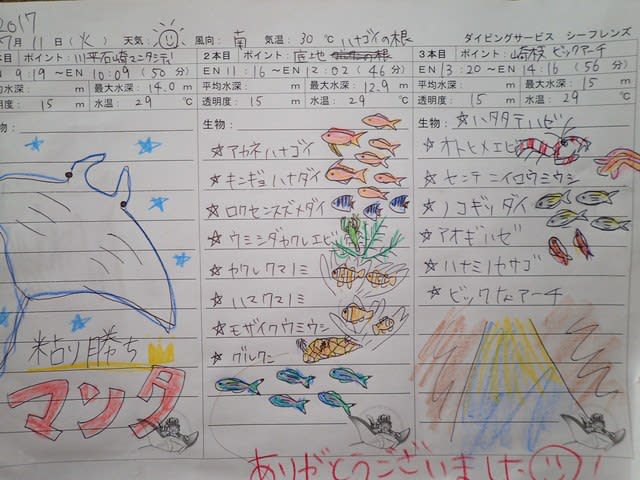 2017
7月11日(火) 天気: 風向: 南 気温: 30℃ ハナゴイの根 ダイビングサービス シーフレンズ
本目 ポイント: 川平石崎マンタシティ
EN 9:19 ~EN 10:09 (50分)
平均水深: m 最大水深: 14.0 m
透明度: 15 m 水温: 29 ℃
生物:
粘り勝ち
マンタ
2本目 ポイント: 底地
EN 11:16 ~EN 12:02 (46分)
平均水深: m 最大水深: 12.9 m
透明度: 15 m 水温: 29 ℃
生物:
☆アカネハナゴイ
☆キンギョハナダイ
☆ロクセンスズメダイ
☆ウミシダカクレエビ
☆カクレクマノミ
☆ハマクマノミ
☆モザイクウミウシ
☆グルクン
3本目 ポイント: 崎枝 ビックアーチ
EN 13:20 ~EN 14:16 (56分)
平均水深: m 最大水深: m
透明度: 15 m 水温: 29 ℃
生物: ☆ハタタテハゼ
☆オトヒメエビ
☆センテンイロウミウシ
☆ノコギリダイ
☆アオギハゼ
☆ハナミノカサゴ
☆ビックなアーチ
ありがとうございました!